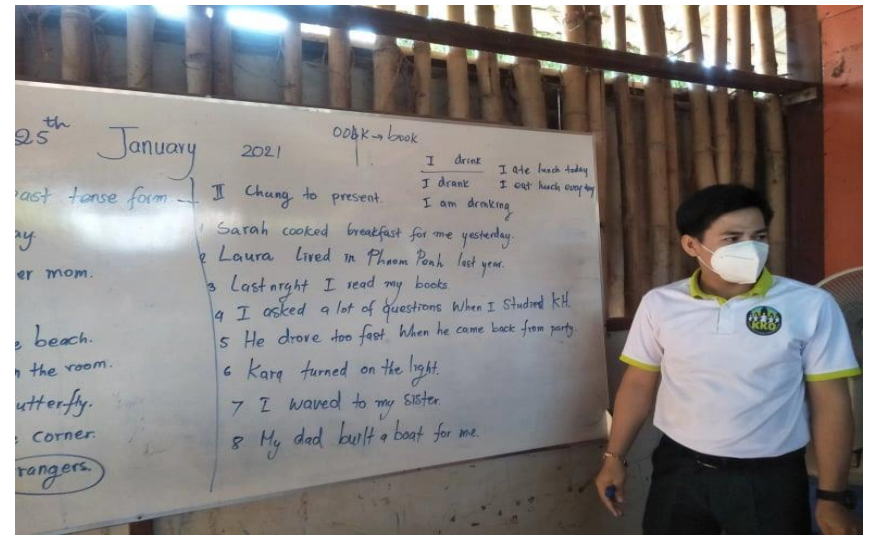 25th January 2021
OObk → book
I drink
I drank
I am drinking
I ate lunch today
I eat lunch every day
ast tense form
ay.
er mom.
e beach.
n the room.
utterfly.
corner.
rangers.
II Chang to present.
1 Sarah cooked breakfast for me yesterday.
2 Laura Lived in Phnom Penh last year.
3 Last night I read my books
4 I asked a lot of questions When I Studied KH.
5 He drove too fast When he came back from party.
6 Kara turned on the light.
7 I waved to my sister.
8 My dad built a boat for me.
KKO